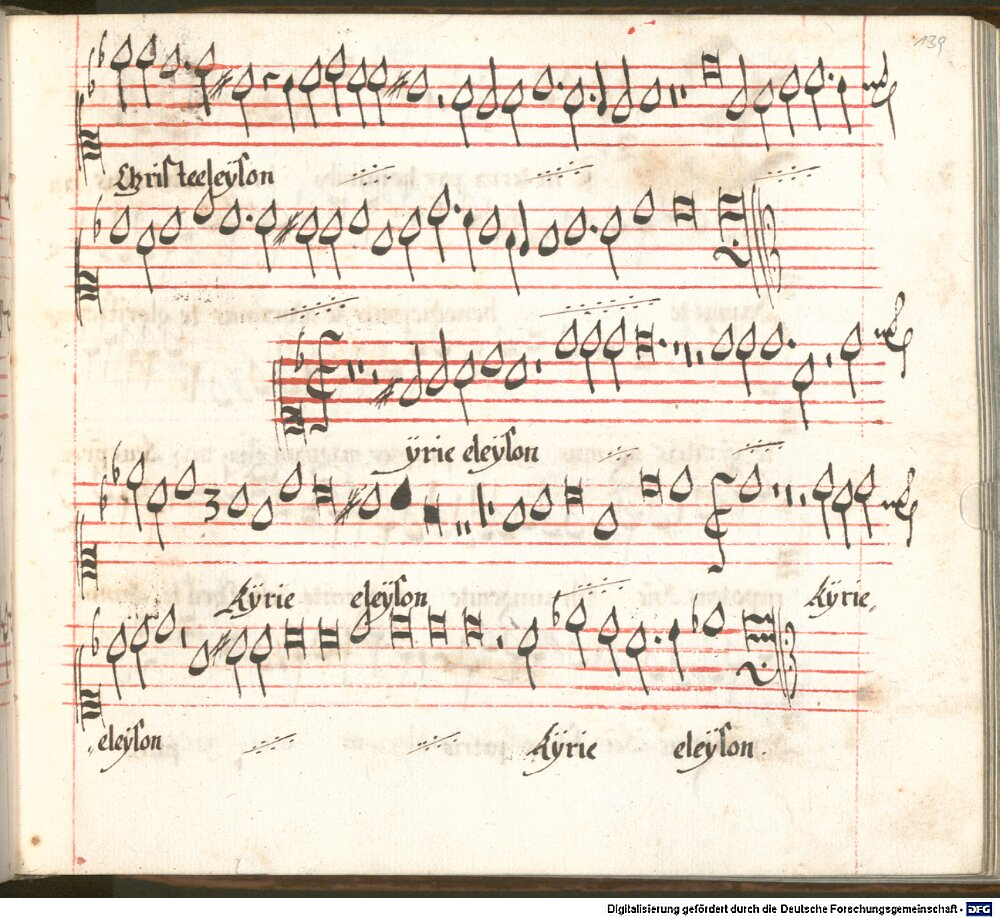 139
Christe eleÿson
ÿrie eleÿson
Kÿrie eleÿson Kÿrie
eleÿson Kÿrie eleÿson
Digitalisierung gefördert durch die Deutsche Forschungsgemeinschaft - DFG